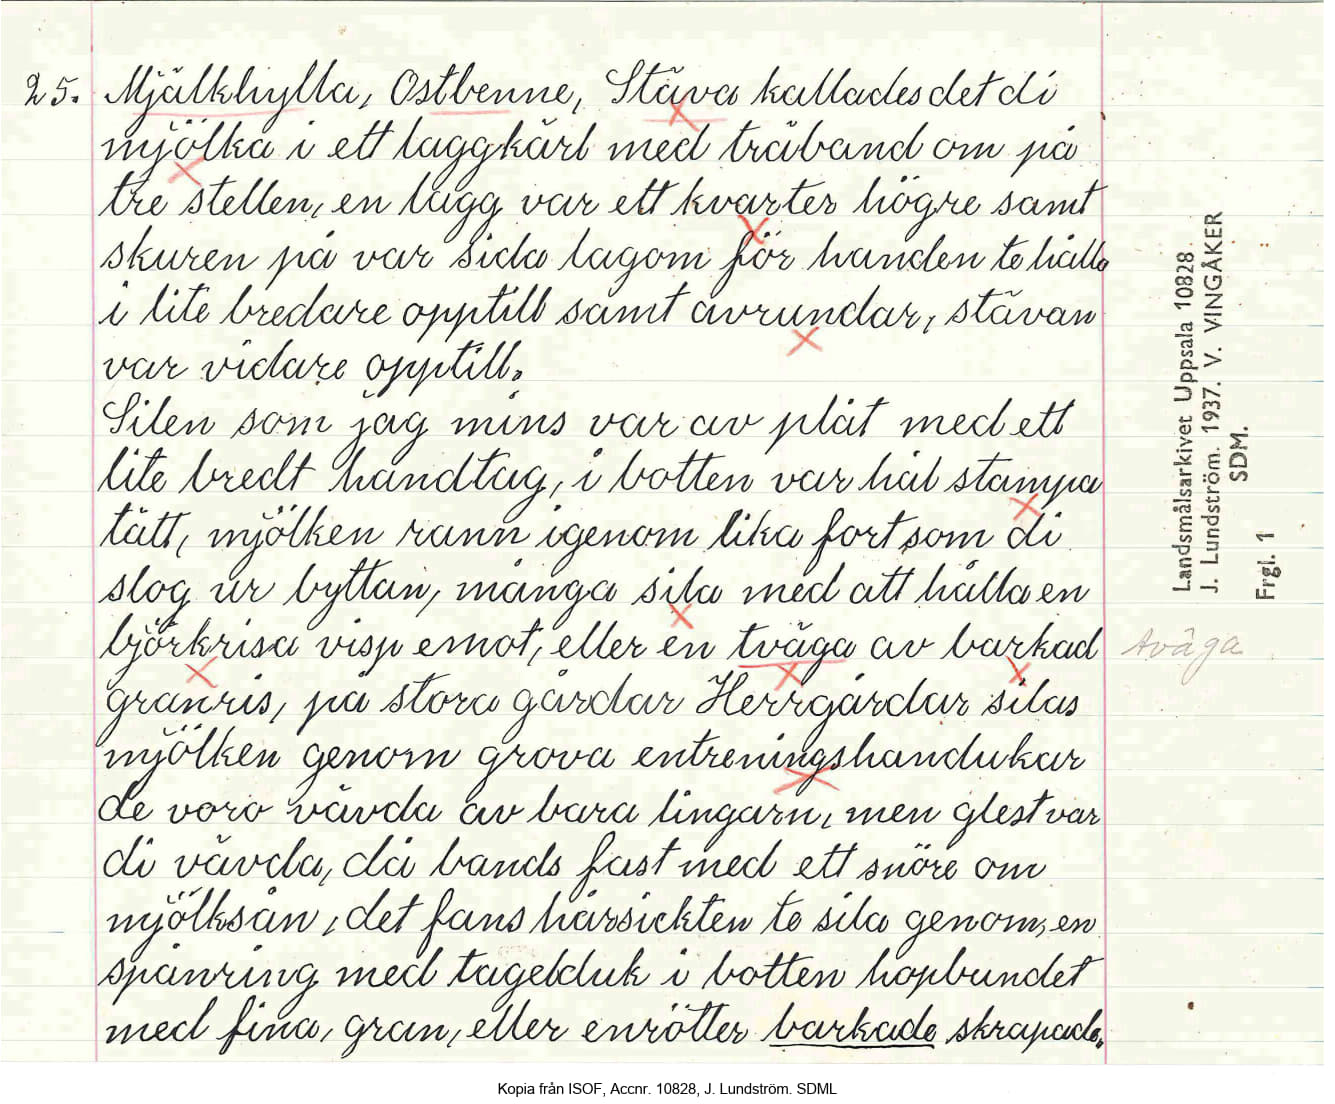 25. Mjälkhylla, Ostbenne, Stäva kallades det di
mjölka i ett laggkärl med träband om på
tre stellen, en lagg var ett kvarter högre samt
skuren på var sida lagom för handen te hålla
i lite bredare opptill samt avrundar, stävan
var vidare opptill.
Silen som jag mins var av plåt med ett
lite bredt handtag, i botten var hål stampa
tätt, mjölken rann igenom lika fort som di
slog ur byttan, många sila med att hålla en
björkrisa visp emot, eller en tväga av barkad
granris, på stora gårdar Herrgårdar silas
mjölken genom grova entreningshandukar
de voro vävda av bara lingarn, men glest var
di vävda, då bands fast med ett snöre om
mjölksån, det fans hårsickten te sila genom, en
spånring med tagelduk i botten hopbundet
med fina, gran, eller enrötter barkade skrapade,,
Landsmålsarkivet Uppsala 10828.
J. Lundström. 1937. V. VINGÅKER
SDM.
Frgl. 1
tväga
Kopia från ISOF, Accnr. 10828, J. Lundström. SDML